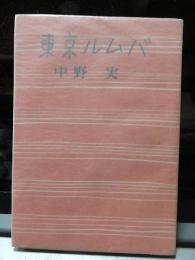 東京ルムバ
中野 実